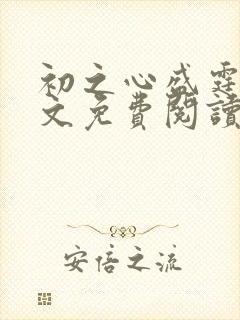 初之心盛霆
文免費閱讀
安倍之流